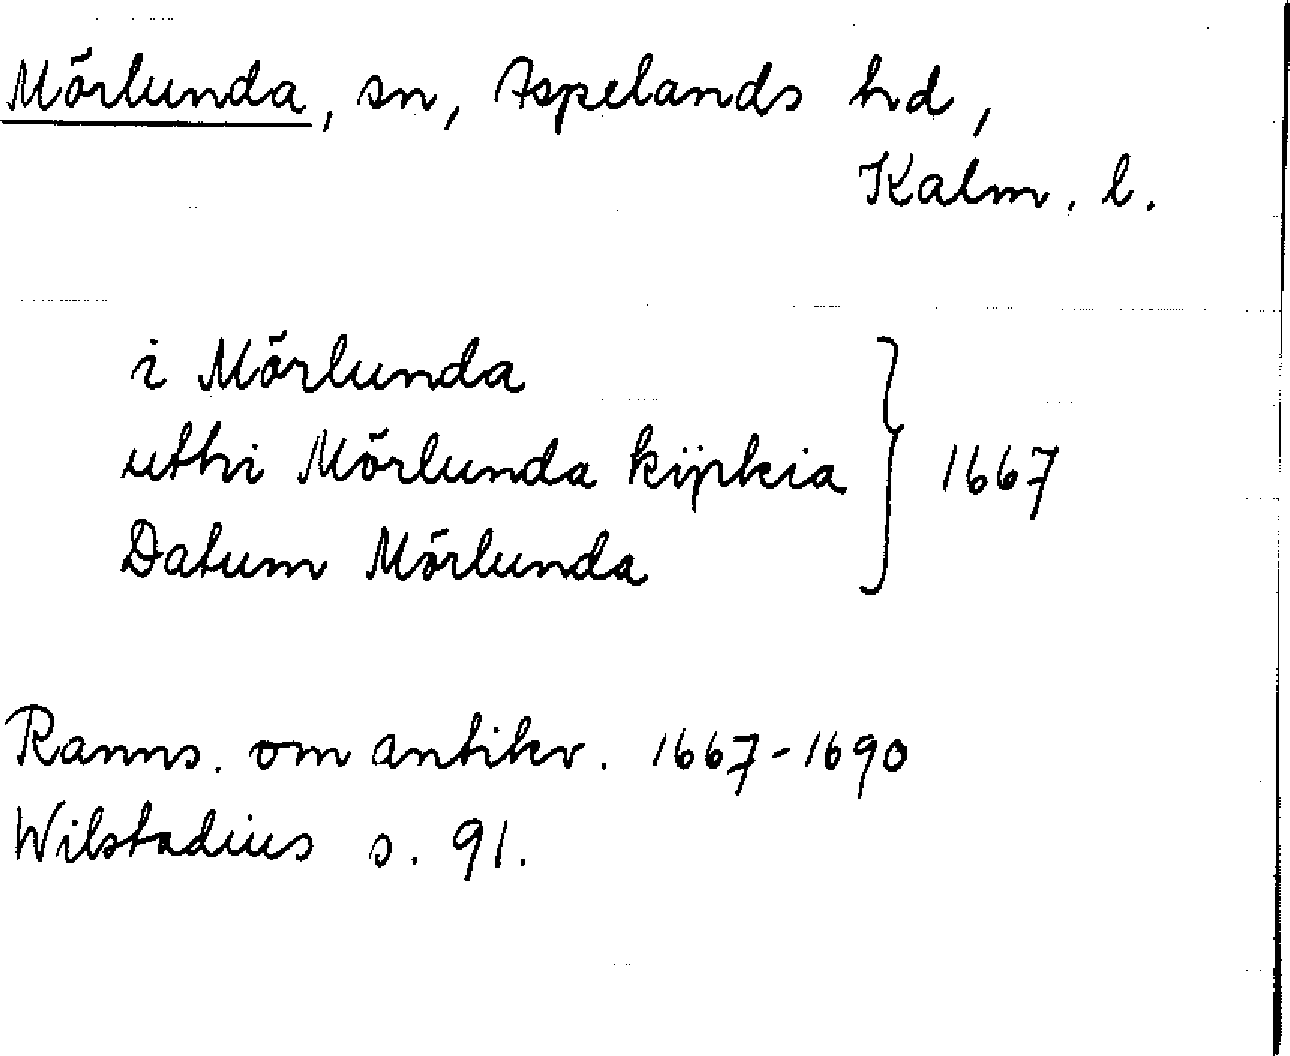 Mörlunda, sn, Aspelands hd,
Kalm. l.
i Mörlunda
uthi Mörlunda kijrkia } 1667
Datum Mörlunda
Ranns. om antikv. 1667-1690
Wilstadius s. 91.